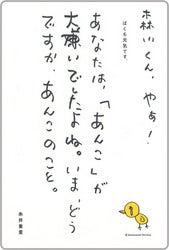 森川くん、やぁ！
ぼくも元気です。
あなたは、「あんこ」が
大嫌いでしたよね。いま、どう
ですか、あんこのこと。
糸井重里